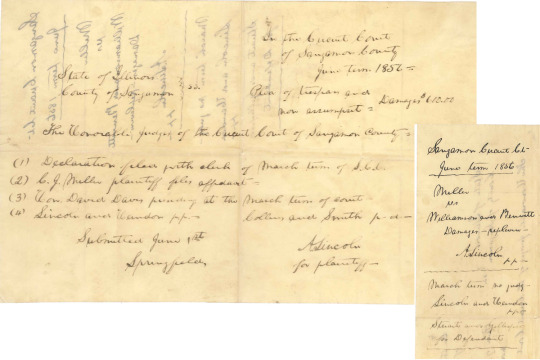 In the Circuit Court
of Sangamon County
June term 1856
State of Illinois
County of Sangamon ss.
Plea of trespass and
non assumpsit = Damages $
The Honorable judges of the Circuit Court of Sangamon County =
(1) Declaration filed with clerk of March term of S.C.C.
(2) C. J. Miller plaintiff files affidavit =
(3) Hon David Davis presiding at the March term of court
(4) Lincoln and Herndon p.p. Collins and Smith p-d-
Submitted June 1st
Springfield
A. Lincoln
for plaintiff
Sangamon Circuit Ct-
June term 1856
Miller
vs
Williamson and Bennett
Damages - replevin -
A. Lincoln
p.p.
March term no judg-
Lincoln and Herndon
p.p.
Stuart and
for Defendants